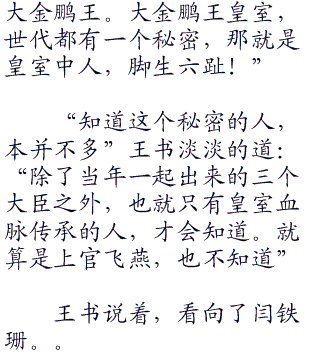 大金鹏王。大金鹏王皇室，
世代都有一个秘密，那就是
皇室中人，脚生六趾！”
“知道这个秘密的人，
本并不多”王书淡淡的道：
“除了当年一起出来的三个
大臣之外，也就只有皇室血
脉传承的人，才会知道。就
算是上官飞燕，也不知道”
王书说着，看向了闫铁
珊。。